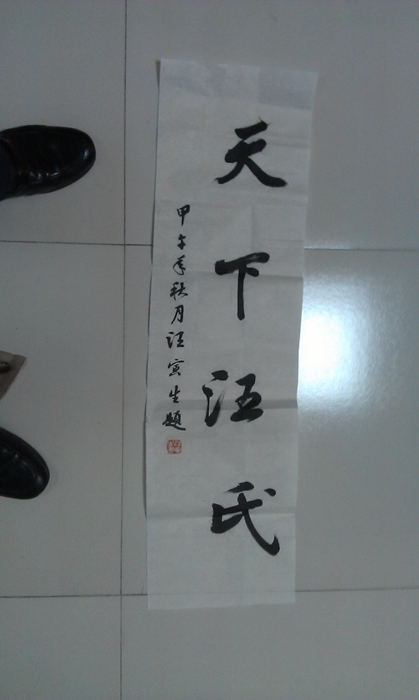 天下汪氏
甲午年秋月汪寅生题